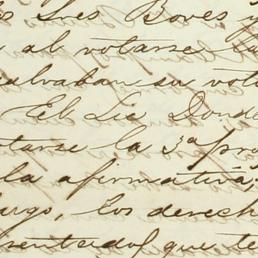 Sres Boves y
al votarse la
salvaban su voto
El Lic Donde
tarse la 3ª pro
la afirmativa,
urgo, los derech
sentados que te